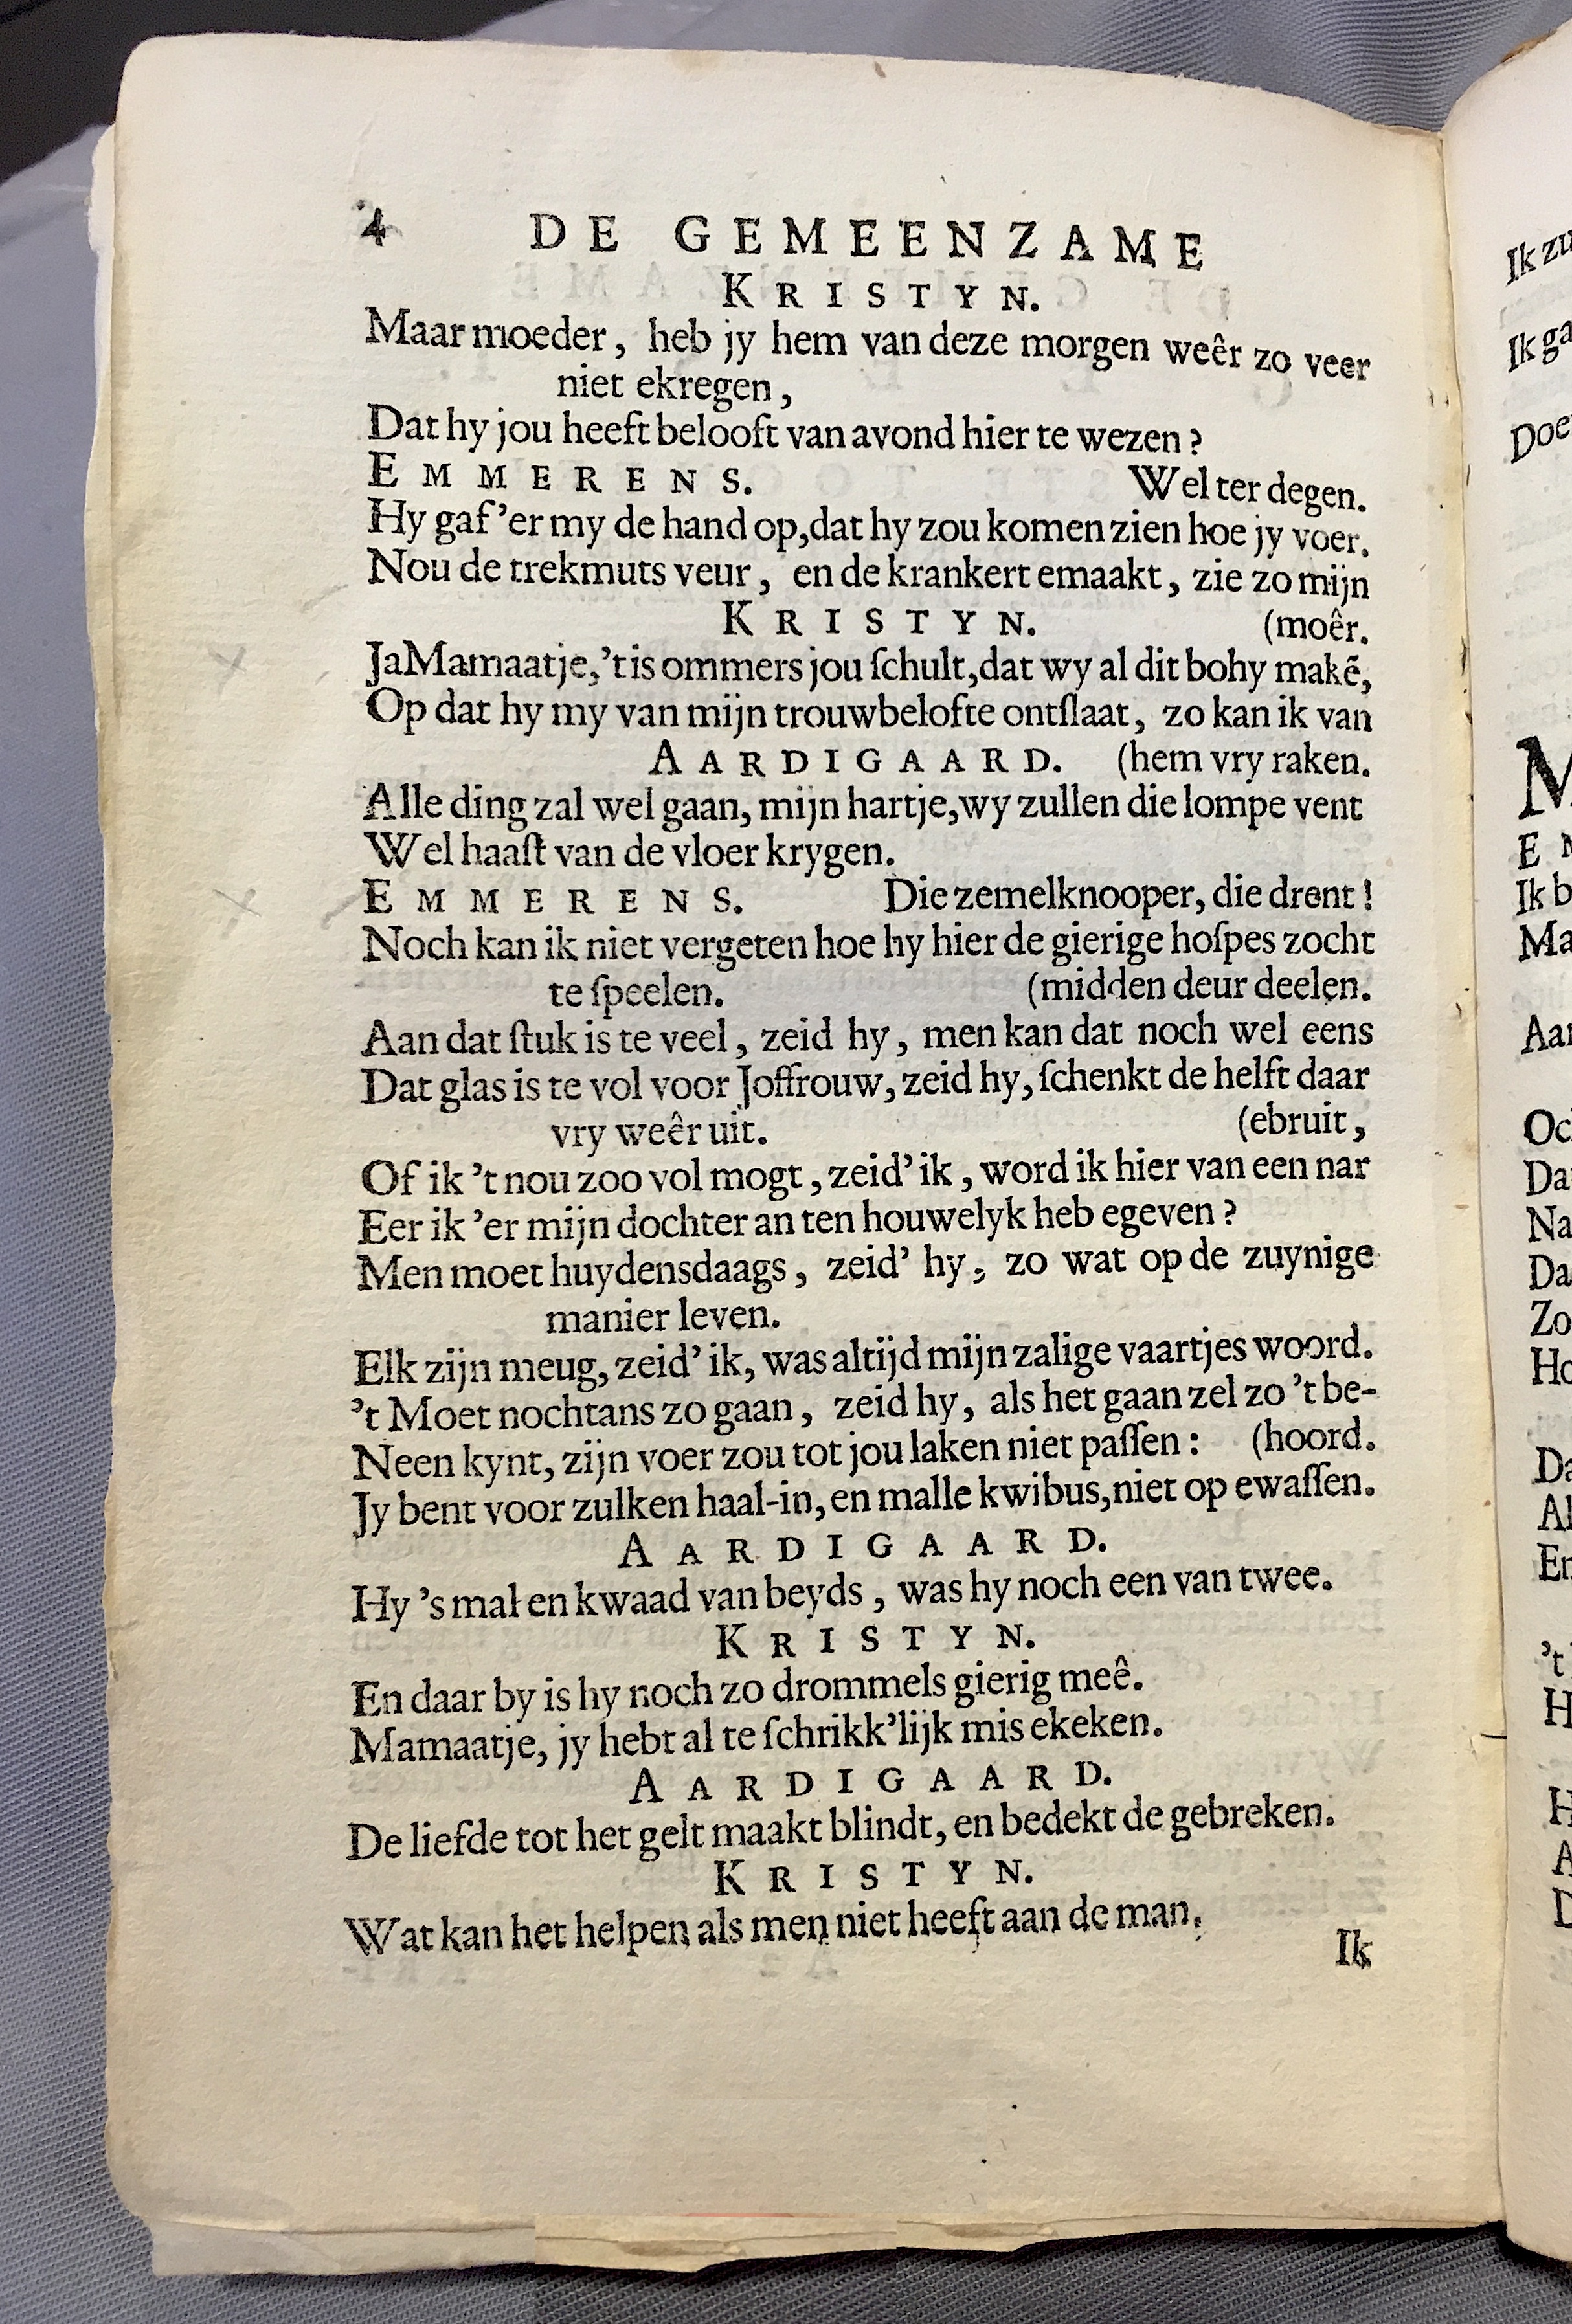 4 DE GEMEENZAME
KRISTYN.
Maar moeder, heb jy hem van deze morgen weêr zo veer
niet ekregen,
Dat hy jou heeft belooft van avond hier te wezen?
EMMERENS. Wel ter degen.
Hy gaf 'er my de hand op, dat hy zou komen zien hoe jy voer.
Nou de trekmuts veur, en de krankert emaakt, zie zo mijn
KRISTYN. (moêr.
Ja Mamaatje, 't is ommers jou ſchult, dat wy al dit bohy makē,
Op dat hy my van mijn trouwbelofte ontſlaat, zo kan ik van
AARDIGAARD. (hem vry raken.
Alle ding zal wel gaan, mijn hartje, wy zullen die lompe vent
Wel haaſt van de vloer krygen.
EMMERENS. Die zemelknooper, die drent!
Noch kan ik niet vergeten hoe hy hier de gierige hoſpes zocht
te ſpeelen. (midden deur deelen.
Aan dat ſtuk is te veel, zeid hy, men kan dat noch wel eens
Dat glas is te vol voor Joffrouw, zeid hy, ſchenkt de helft daar
vry weêr uit. (ebruit,
Of ik 't nou zoo vol mogt, zeid' ik, word ik hier van een nar
Eer ik 'er mijn dochter an ten houwelyk heb egeven?
Men moet huydensdaags, zeid' hy, zo wat op de zuynige
manier leven.
Elk zijn meug, zeid' ik, was altijd mijn zalige vaartjes woord.
't Moet nochtans zo gaan, zeid hy, als het gaan zel zo 't be-
Neen kynt, zijn voer zou tot jou laken niet paſſen: (hoord.
Jy bent voor zulken haal-in, en malle kwibus, niet op ewaſſen.
AARDIGAARD.
Hy 's mal en kwaad van beyds, was hy noch een van twee.
KRISTYN.
En daar by is hy noch zo drommels gierig meê.
Mamaatje, jy hebt al te ſchrikk'lijk mis ekeken.
AARDIGAARD.
De liefde tot het gelt maakt blindt, en bedekt de gebreken.
KRISTYN.
Wat kan het helpen als men niet heeft aan de man,
Ik